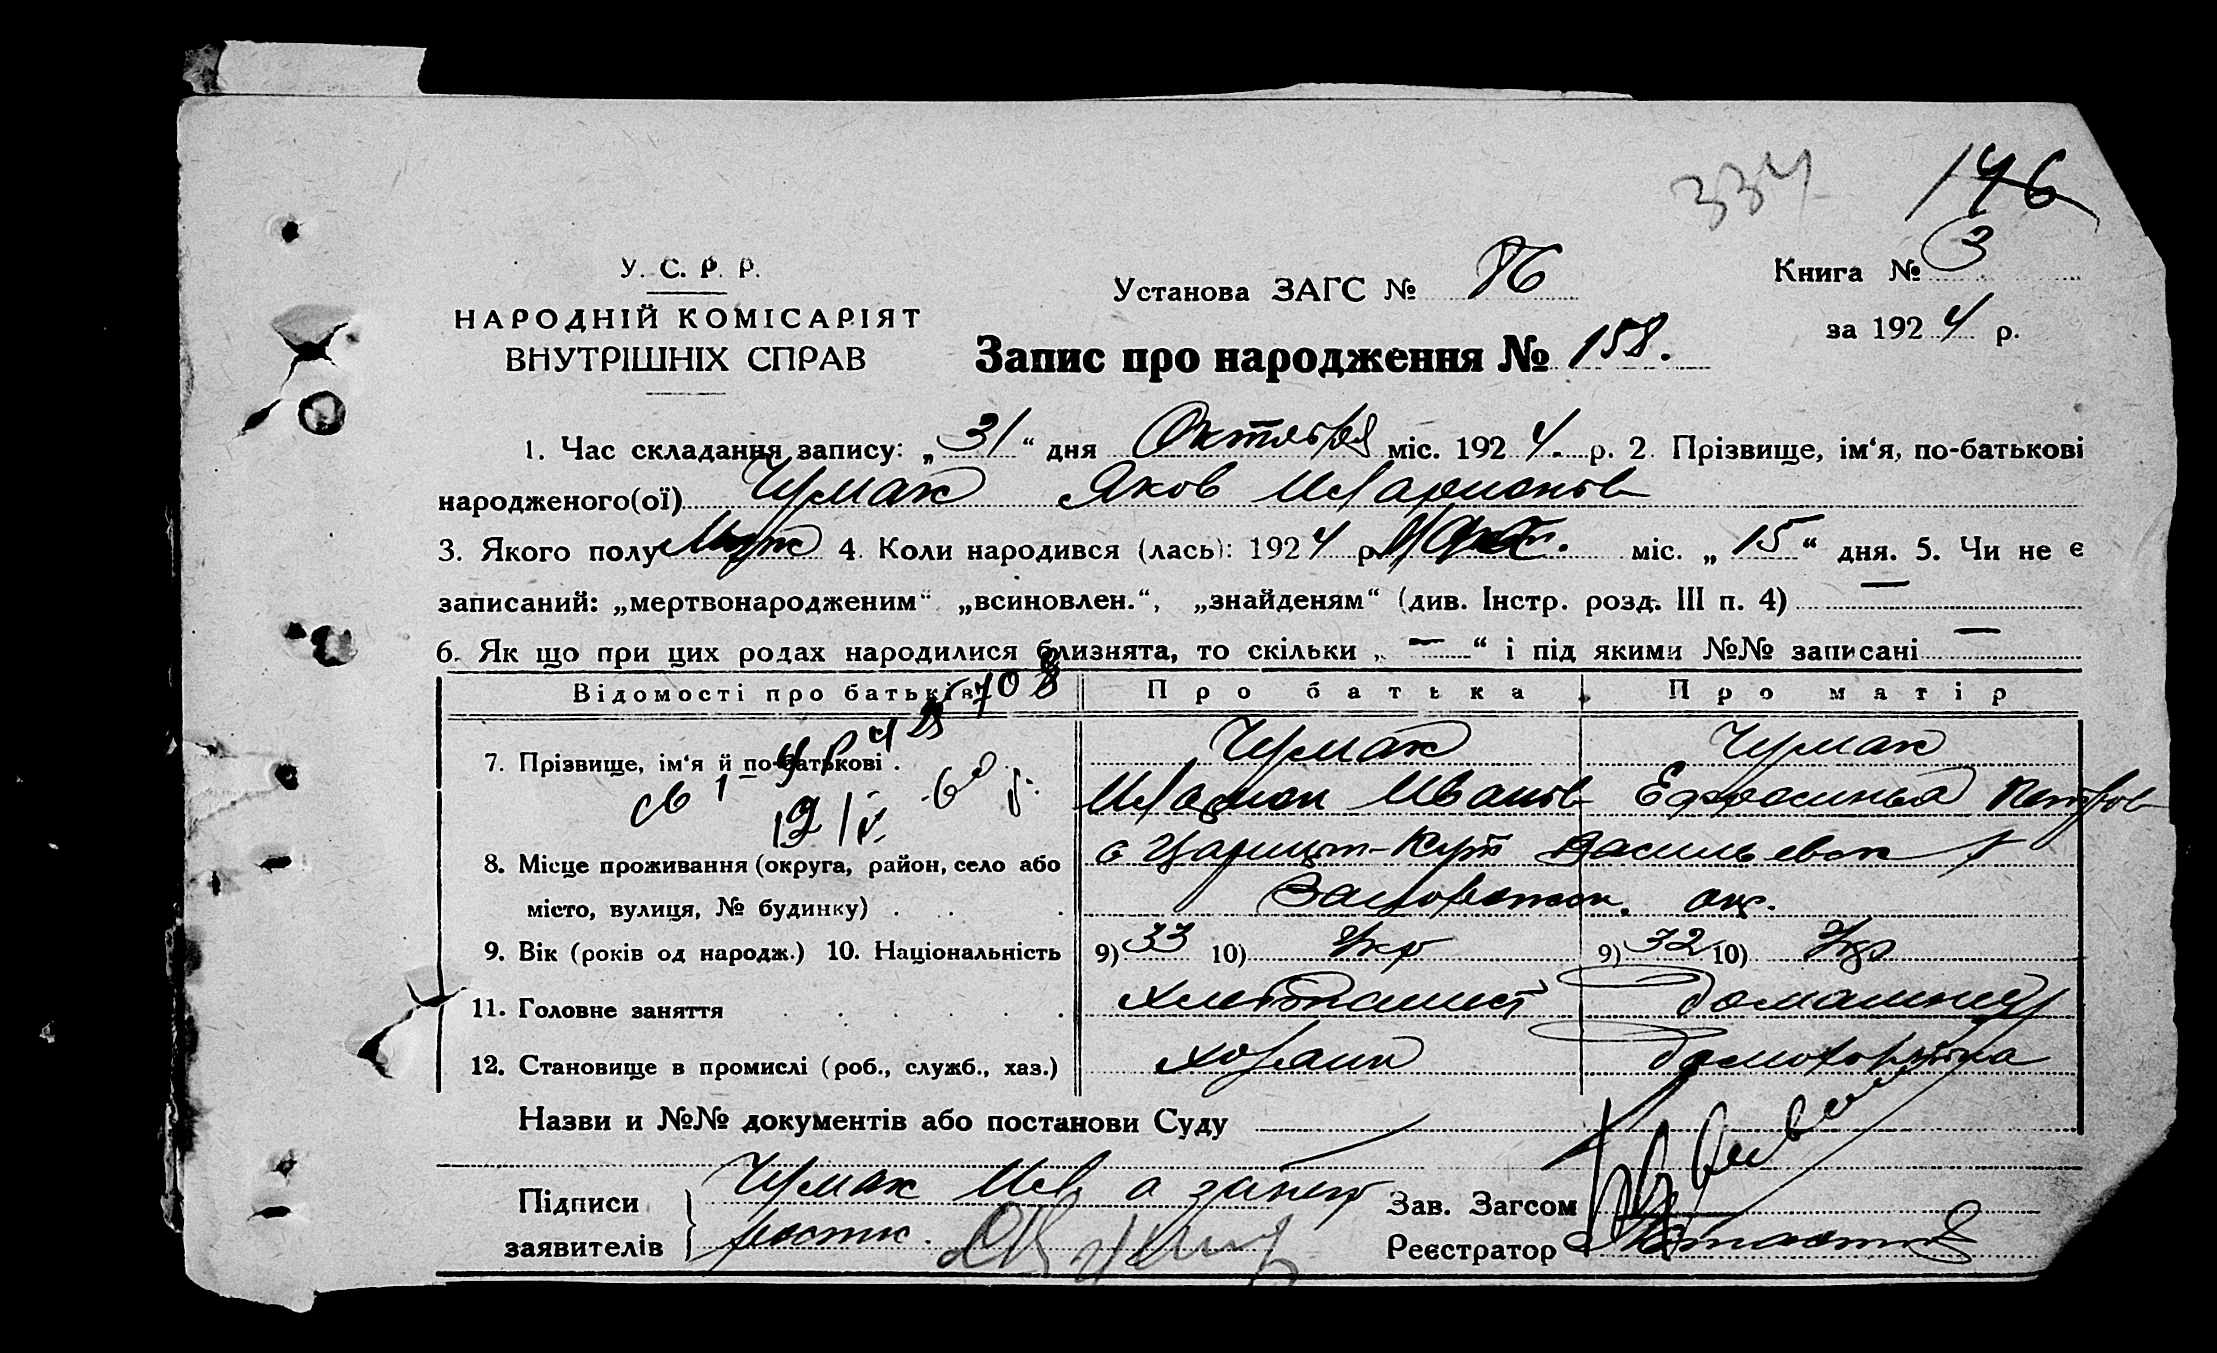 334 146
У. С. Р. Р.
НАРОДНІЙ КОМІСАРІЯТ
ВНУТРІШНІХ СПРАВ
Установа ЗАГС № 86
Книга № 3
за 1924 р.
Запис про народження № 158.
1. Час складання запису: „31“ дня Октября міс. 1924. р. 2. Прізвище, ім‘я, по-батькові
народженого(ої) Чумак Яков Иларионов
3. Якого полу Муж 4. Коли народився (лась): 1924 р. Окт. міс. „15“ дня. 5. Чи не є
записаний: „мертвонародженим“ „всиновлен.“, „знайденям“ (див. Інстр. розд. III п. 4) —
6. Як що при цих родах народилися близнята, то скільки „—“ і під якими №№ записані —
Відомості про батьків Про батька Про матір
7. Прізвище, ім‘я й по-батькові . Чумак Чумак
Иларион Иванов Ефросинья Петров
8. Місце проживання (округа, район, село або с Царицын-Кут Васильевск р
місто, вулиця, № будинку) . . . Запорожск. окр.
9. Вік (років од народж.) 10. Національність 9) 33 10) Укр 9) 32 10) Укр
11. Головне заняття . . . . . . Хлебопашест домашнея
12. Становище в промислі (роб., служб., хаз.) хозаин домохозяйка
Назви и №№ документів або постанови Суду
Підписи заявителів Чумак Ил а за негр
роспис.
Зав. Загсом
Реєстратор